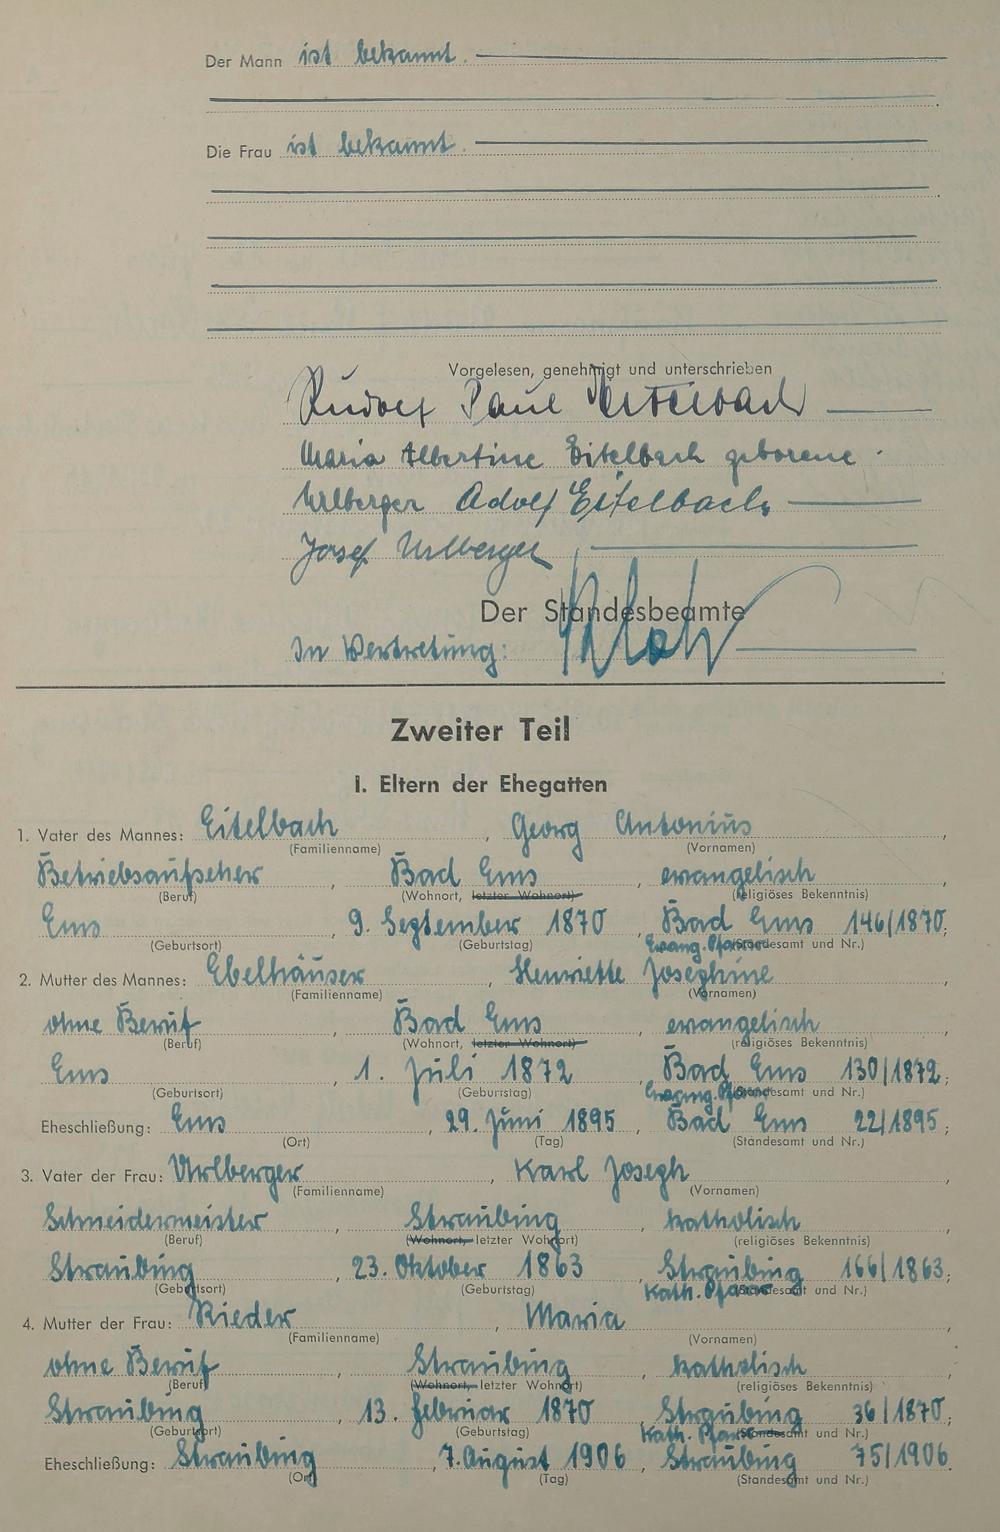 Der Mann ist bekannt.
Die Frau ist bekannt.
Vorgelesen, genehmigt und unterschrieben
Rudolf Paul Eitelbach
Maria Albertine Eitelbach geborene
Urlberger Adolf Eitelbach
Josef Urlberger
Der Standesbeamte
In Vertretung:
Zweiter Teil
I. Eltern der Ehegatten
1. Vater des Mannes: Eitelbach, Georg Antonius,
(Familienname) (Vornamen)
Betriebsaufseher, Bad Ems, evangelisch,
(Beruf) (Wohnort, letzter Wohnort) (religiöses Bekenntnis)
Ems, 9. September 1870, Bad Ems 146/1870;
(Geburtsort) (Geburtstag) Evang. Pfarramt (Standesamt und Nr.)
2. Mutter des Mannes: Ebelhäuser, Henriette Josephine,
(Familienname) (Vornamen)
ohne Beruf, Bad Ems, evangelisch,
(Beruf) (Wohnort, letzter Wohnort) (religiöses Bekenntnis)
Ems, 1. Juli 1872, Bad Ems 130/1872;
(Geburtsort) (Geburtstag) Evang. Pfarramt (Standesamt und Nr.)
Eheschließung: Ems, 29. Juni 1895, Bad Ems 22/1895;
(Ort) (Tag) (Standesamt und Nr.)
3. Vater der Frau: Urlberger, Karl Joseph,
(Familienname) (Vornamen)
Schneidermeister, Straubing, katholisch,
(Beruf) (Wohnort, letzter Wohnort) (religiöses Bekenntnis)
Straubing, 23. Oktober 1863, Straubing 166/1863;
(Geburtsort) (Geburtstag) Kath. Pfarramt (Standesamt und Nr.)
4. Mutter der Frau: Rieder, Maria,
(Familienname) (Vornamen)
ohne Beruf, Straubing, katholisch,
(Beruf) (Wohnort, letzter Wohnort) (religiöses Bekenntnis)
Straubing, 13. Februar 1870, Straubing 36/1870;
(Geburtsort) (Geburtstag) Kath. Pfarramt (Standesamt und Nr.)
Eheschließung: Straubing, 7. August 1906, Straubing 75/1906.
(Ort) (Tag) (Standesamt und Nr.)